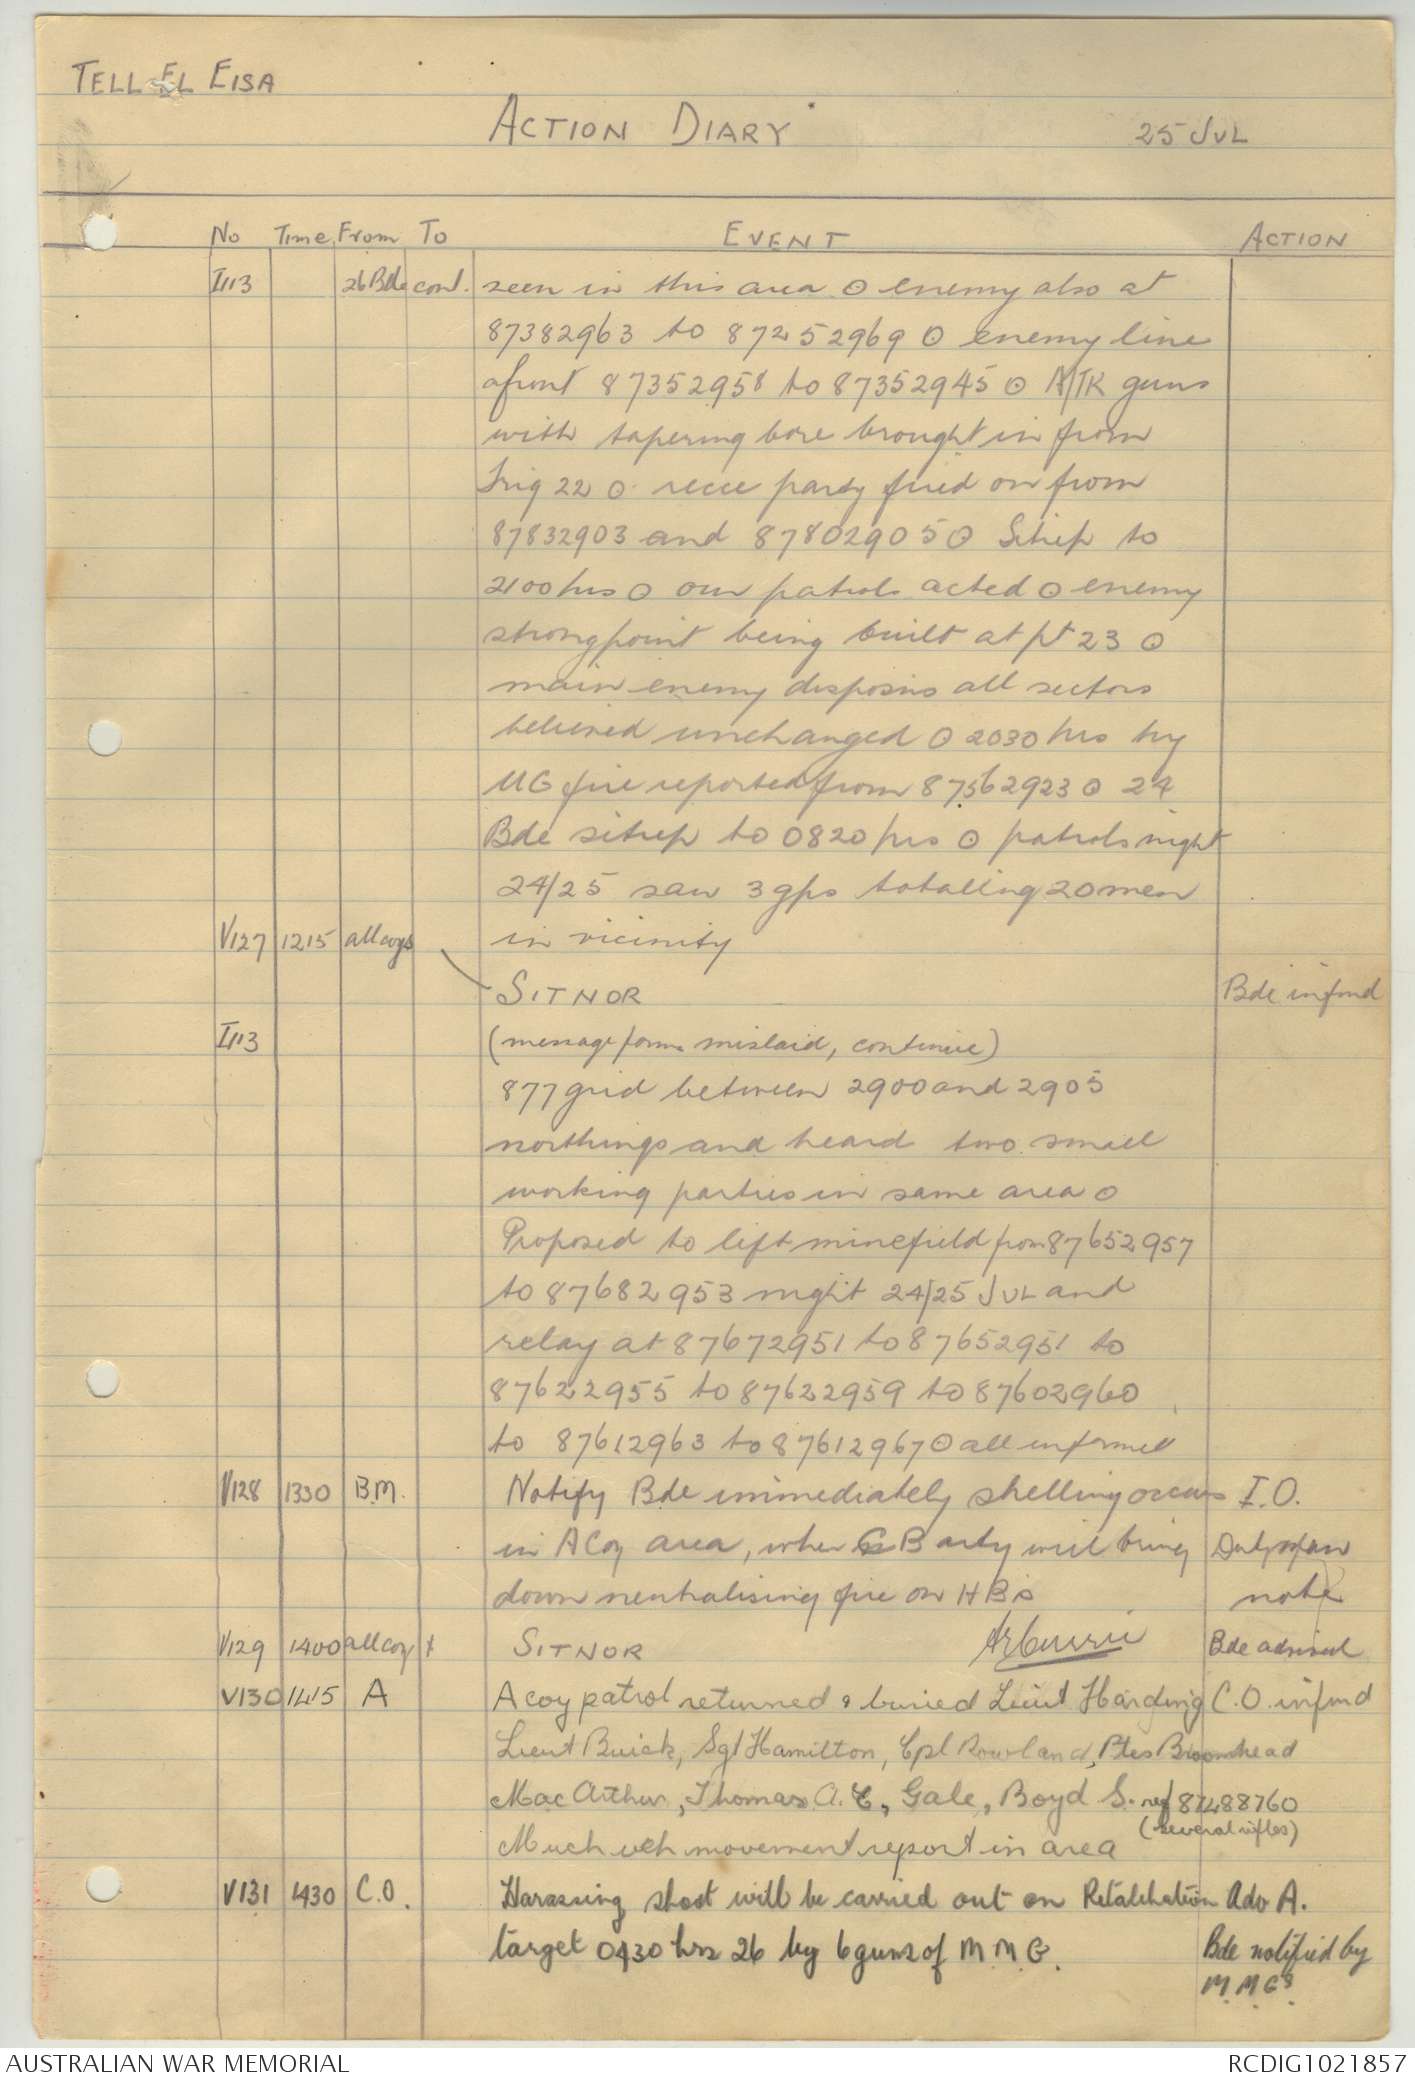 TELL EL EISA
ACTION DIARY
25 JUL
No Time From To EVENT ACTION
I113 26 Bde cont. seen in this area ⊙ enemy also at
87382963 to 87252969 ⊙ enemy line
afront 87352958 to 87352945 ⊙ A/TK guns
with tapering bore brought in from
Trig 22 ⊙ recce party fired on from
87832903 and 87802905 ⊙ Sitrep to
2100 hrs ⊙ our patrols acted ⊙ enemy
strongpoint being built at pt 23 ⊙
main enemy disposns all sectors
believed unchanged ⊙ 2030 hrs hy
MG fire reported from 87562923 ⊙ 24
Bde sitrep to 0820 hrs ⊙ patrols night
24/25 saw 3 gps totalling 20 men
V127 1215 all coys in vicinity
SITNOR Bde infmd
I113 (message form mislaid, continue)
877 grid between 2900 and 2905
northings and heard two small
working parties in same area ⊙
Proposed to lift minefield from 87652957
to 87682953 night 24/25 JUL and
relay at 87672951 to 87652951 to
87622955 to 87622959 to 87602960
to 87612963 to 87612967 ⊙ all informed
V128 1330 B.M. Notify Bde immediately shelling occurs I.O.
in A Coy area, when B arty will bring Duty
down neutralising fire on HBs note
V129 1400 all coy + SITNOR Bde advised
V130 1415 A A coy patrol returned & buried Lieut Harding C.O. infmd
Lieut Buick, Sgt Hamilton, Cpl Rowland, Ptes Broomhead
MacArthur, Thomas A.E., Gale, Boyd S. ref 87488760
(several rifles)
Much veh movement report in area
V131 1430 C.O. Harassing shoot will be carried out on Retaliation Adv A.
target 0430 hrs 26 by 6 guns of M M G. Bde notified by
M.M.Gs.
AUSTRALIAN WAR MEMORIAL RCDIG1021857